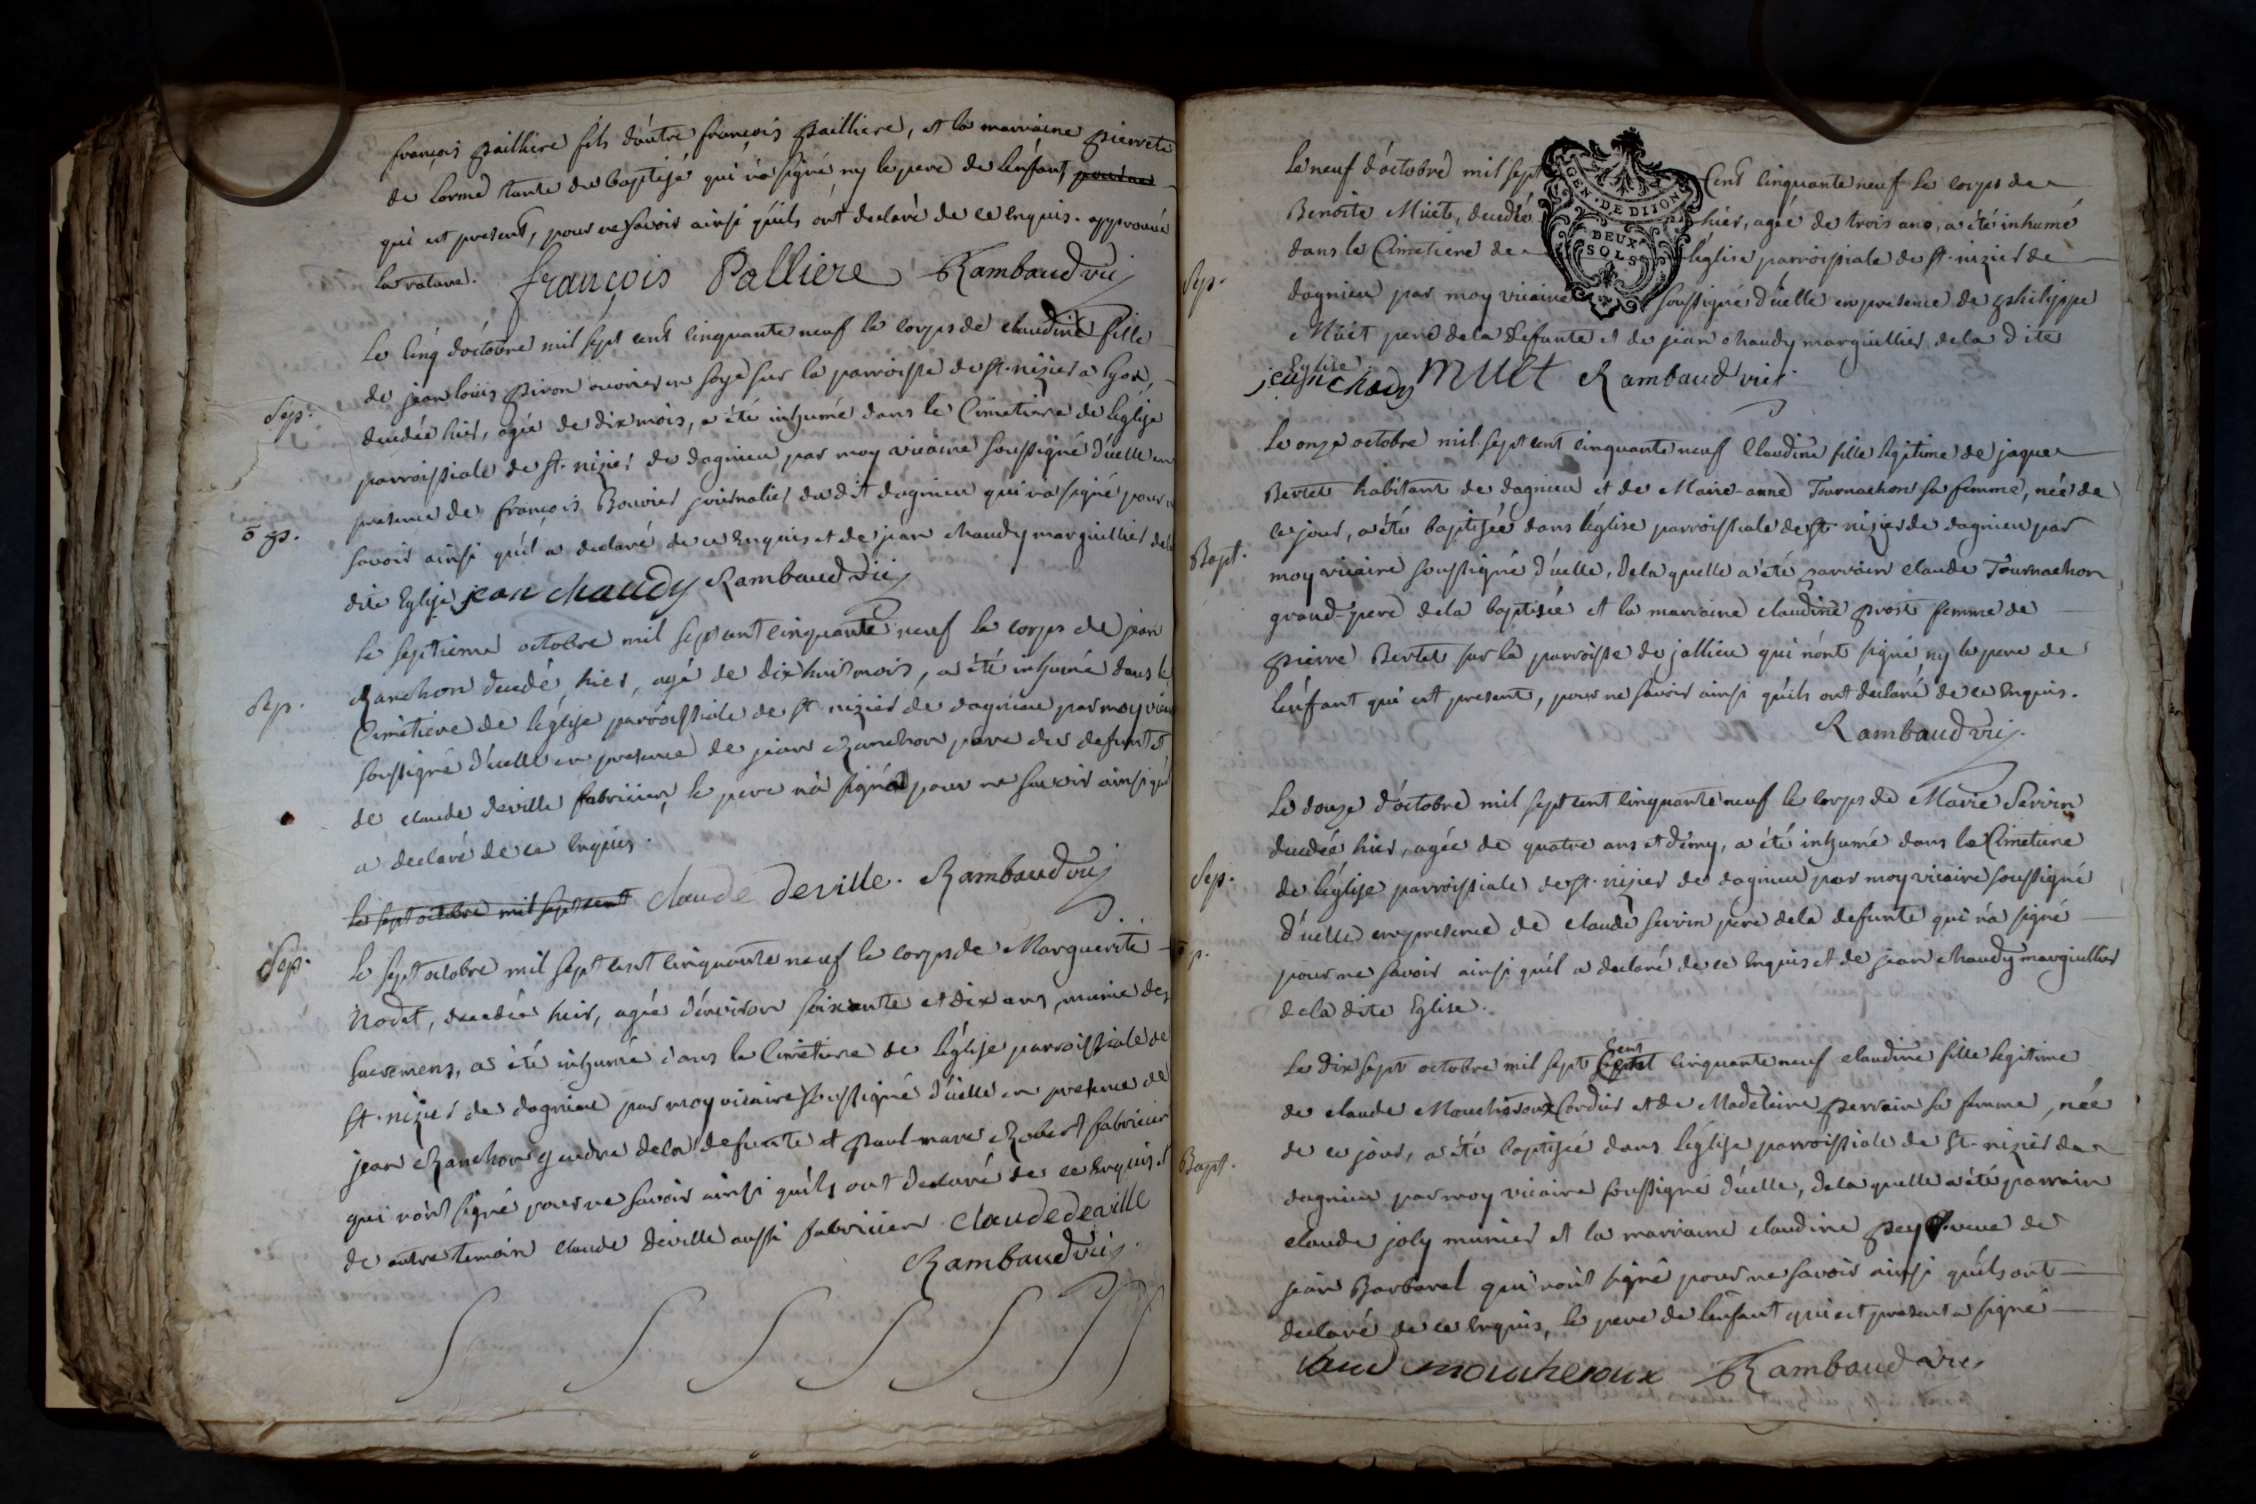 françois Paillière fils d'autre françois Paillière, et la marraine Pierrete
de Lorme tante du baptisé qui n'a signé ny le pere de l'enfant
qui est present, pour ne savoir ainsi qu'ils ont declaré de ce enquis. approuvé
la rature. françois Palliere Rambaud vic
Le cinq d'octobre mil sept cent cinquante neuf le corps de claudine fille
Sep.
de jean louis Piron ouvrier en soye sur la parroisse de st. nizier a lyon,
decedée hier, agée de dix mois, a été inhumé dans le Cimetiere de l'église
parroissiale de st. nizier de dagnieu par moy vicaire soussigné d'icelle en
presence de françois Bouvier journalier du dit dagnieu qui n'a signé pour ne
savoir ainsi qu'il a declaré de ce enquis et de jean chaudy marguillier de la
dite Eglise jean chaudy Rambaud vic
le septieme octobre mil sept cent cinquante neuf le corps de jean
Sep.
Ranchon decedé hier, agé de dix huit mois, a été inhumé dans le
Cimetiere de l'église parroissiale de st. nizier de dagnieu par moy vicaire
soussigné d'icelle en presence de jean Ranchon pere du defunt et
de claude deville fabricien, le pere n'a signé pour ne savoir ainsi qu'il
a declaré de ce enquis.
Le sept octobre mil sept cent claude deville. Rambaud vic
Sep.
le sept octobre mil sept cent cinquante neuf le corps de Marguerite
Nodet, decedée hier, agée d'environ soixante et dix ans, munie des
sacremens, a été inhumé dans le Cimetiere de l'église parroissiale de
st. nizier de dagnieu par moy vicaire soussigné d'icelle en presence de
jean Ranchon gendre de la defunte et Paul-marc Robert fabricien
qui n'ont signé pour ne savoir ainsi qu'ils ont declaré de ce enquis et
de autre temoin claude deville aussi fabricien. Claude deville
Rambaud vic.
Le neuf d'octobre mil sept Cent cinquante neuf le corps de
Benoite Muet, decedée hier, agée de trois ans, a été inhumé
dans le Cimetiere de l'église parroissiale de st. nizier de
Sep.
dagnieu par moy vicaire soussigné d'icelle en presence de philippe
Muet pere de la defunte et de jean chaudy marguillier de la dite
Eglise.
jean chaudy muet Rambaud vic.
GEN. DE DIJON
DEUX
SOLS
Le onze octobre mil sept cent cinquante neuf Claudine fille legitime de jaque
Bertet habitant de dagnieu et de Marie-anne Tournachon sa femme, née de
ce jour, a été baptisée dans l'église parroissiale de st. nizier de dagnieu par
Bapt.
moy vicaire soussigné d'icelle, de la quelle a été parrain claude Tournachon
grand-pere de la baptisée et la marraine claudine Prost femme de
Pierre Bertet sur la parroisse de jallieu qui n'ont signé ny le pere de
l'enfant qui est present, pour ne savoir ainsi qu'ils ont declaré de ce enquis.
Rambaud vic.
Le douze d'octobre mil sept cent cinquante neuf le corps de Marie Servin
decedée hier, agée de quatre ans et démy, a été inhumé dans le Cimetiere
Sep.
de l'église parroissiale de st. nizier de dagnieu par moy vicaire soussigné
d'icelle en presence de claude servin pere de la defunte qui n'a signé
pour ne savoir ainsi qu'il a declaré de ce enquis et de jean chaudy marguillier
de la dite Eglise.
Le dix sept octobre mil sept cent cinquante neuf claudine fille legitime
de claude Moucheroux Cordier et de Madeleine Perrain sa femme, née
de ce jour, a été baptisée dans l'église parroissiale de st. nizier de
Bapt.
dagnieu par moy vicaire soussigné d'icelle, de la quelle a été parrain
claude joly munier et la marraine claudine veuve de
jean Barbarel qui n'ont signé pour ne savoir ainsi qu'ils ont
declaré de ce enquis, le pere de l'enfant qui est present a signé
moucheroux Rambaud vic